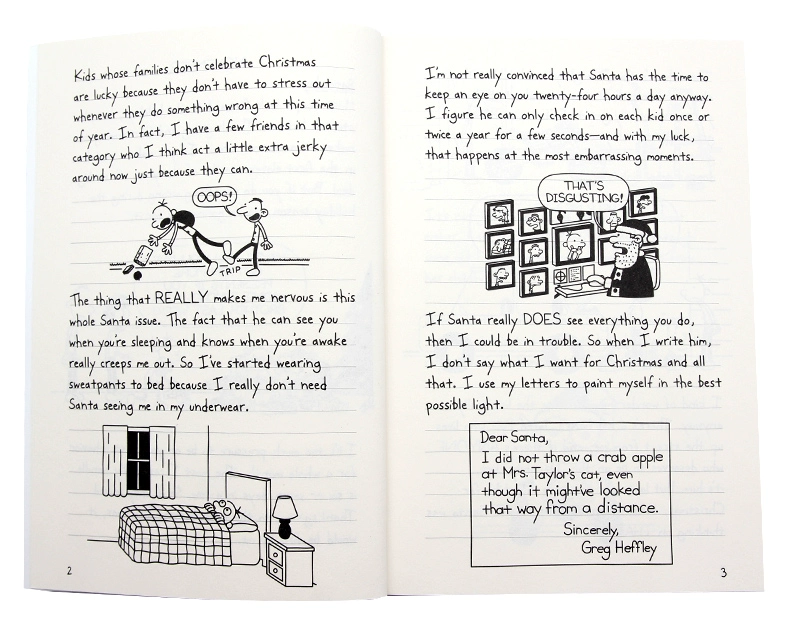 Kids whose families don't celebrate Christmas
are lucky because they don't have to stress out
whenever they do something wrong at this time
of year. In fact, I have a few friends in that
category who I think act a little extra jerky
around now just because they can.
OOPS!
TRIP
The thing that REALLY makes me nervous is this
whole Santa issue. The fact that he can see you
when you're sleeping and knows when you're awake
really creeps me out. So I've started wearing
sweatpants to bed because I really don't need
Santa seeing me in my underwear.
2
I'm not really convinced that Santa has the time to
keep an eye on you twenty-four hours a day anyway.
I figure he can only check in on each kid once or
twice a year for a few seconds—and with my luck,
that happens at the most embarrassing moments.
THAT'S
DISGUSTING!
If Santa really DOES see everything you do,
then I could be in trouble. So when I write him,
I don't say what I want for Christmas and all
that. I use my letters to paint myself in the best
possible light.
Dear Santa,
I did not throw a crab apple
at Mrs. Taylor's cat, even
though it might've looked
that way from a distance.
Sincerely,
Greg Heffley
3